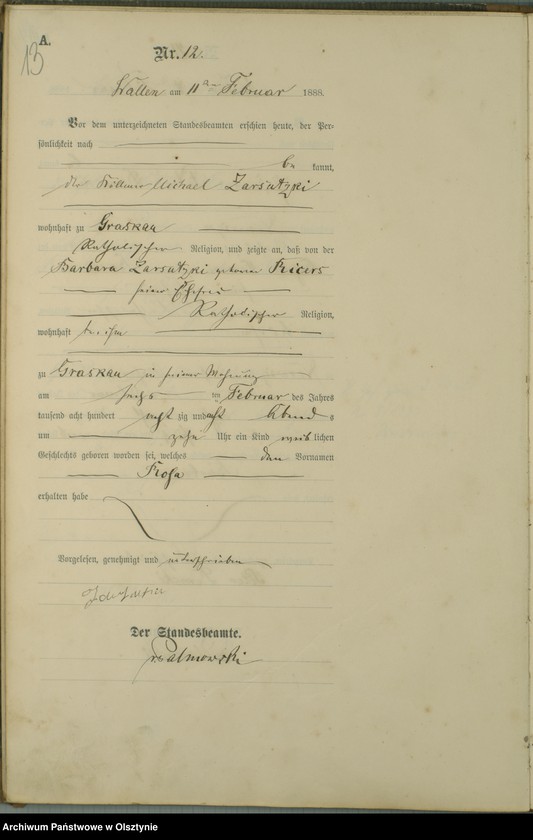 A.
13
Nr. 12.
Wallen am 11ten Februar 1888.
Vor dem unterzeichneten Standesbeamten erschien heute, der Per-
sönlichkeit nach
be kannt,
der Michael Zarsutzki
wohnhaft zu Graskau
Katholischer Religion, und zeigte an, daß von der
Barbara Zarsutzki geborne
seiner Ehefrau
Katholischer Religion,
wohnhaft bei ihm
zu Graskau in seiner Wohnung
am sechs ten Februar des Jahres
tausend acht hundert acht zig und acht Abend s
um zehn Uhr ein Kind weib lichen
Geschlechts geboren worden sei, welches den Vornamen
Rosa
erhalten habe
Vorgelesen, genehmigt und unterschrieben
Der Standesbeamte.
Palmowski
Archiwum Państwowe w Olsztynie